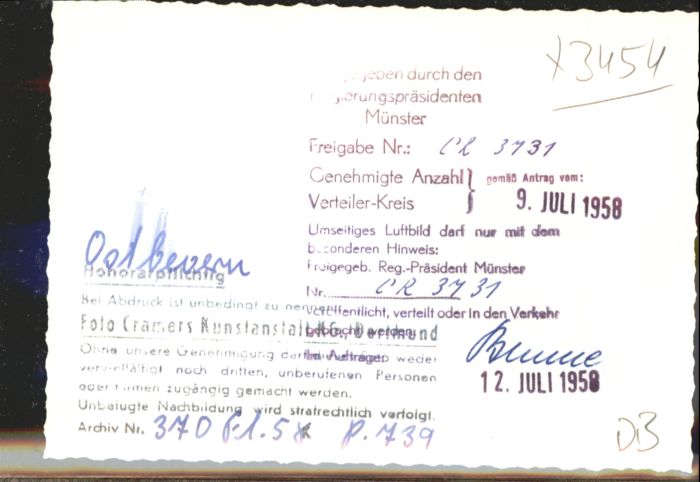 x3454
geben durch den
Regierungspräsidenten
Münster
Freigabe Nr.: CR 3731
Genehmigte Anzahl } gemäß Antrag vom:
Verteiler-Kreis 9. JULI 1958
Umseitiges Luftbild darf nur mit dem
besonderen Hinweis:
Freigegeb. Reg.-Präsident Münster
Nr. CR 3731
veröffentlicht, verteilt oder in den Verkehr
gebracht werden.
Im Auftrage:
12. JULI 1958
Ostbevern
Honorarpflichtig
Bei Abdruck ist unbedingt zu nennen:
Foto Cramers Kunstanstalt KG., Dortmund
Ohne unsere Genehmigung darf weder
vervielfältigt noch dritten, unberufenen Personen
oder Firmen zugängig gemacht werden.
Unbefugte Nachbildung wird strafrechtlich verfolgt.
Archiv Nr. 370 P. 739
DB